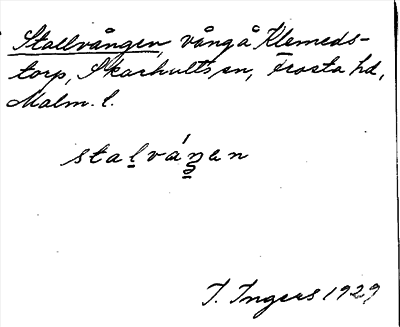 Stallvången, vång å Klemeds-
torp, Skarhults sn, Frosta hd,
Malm. l.
stalváŋen
I. Ingers 1929